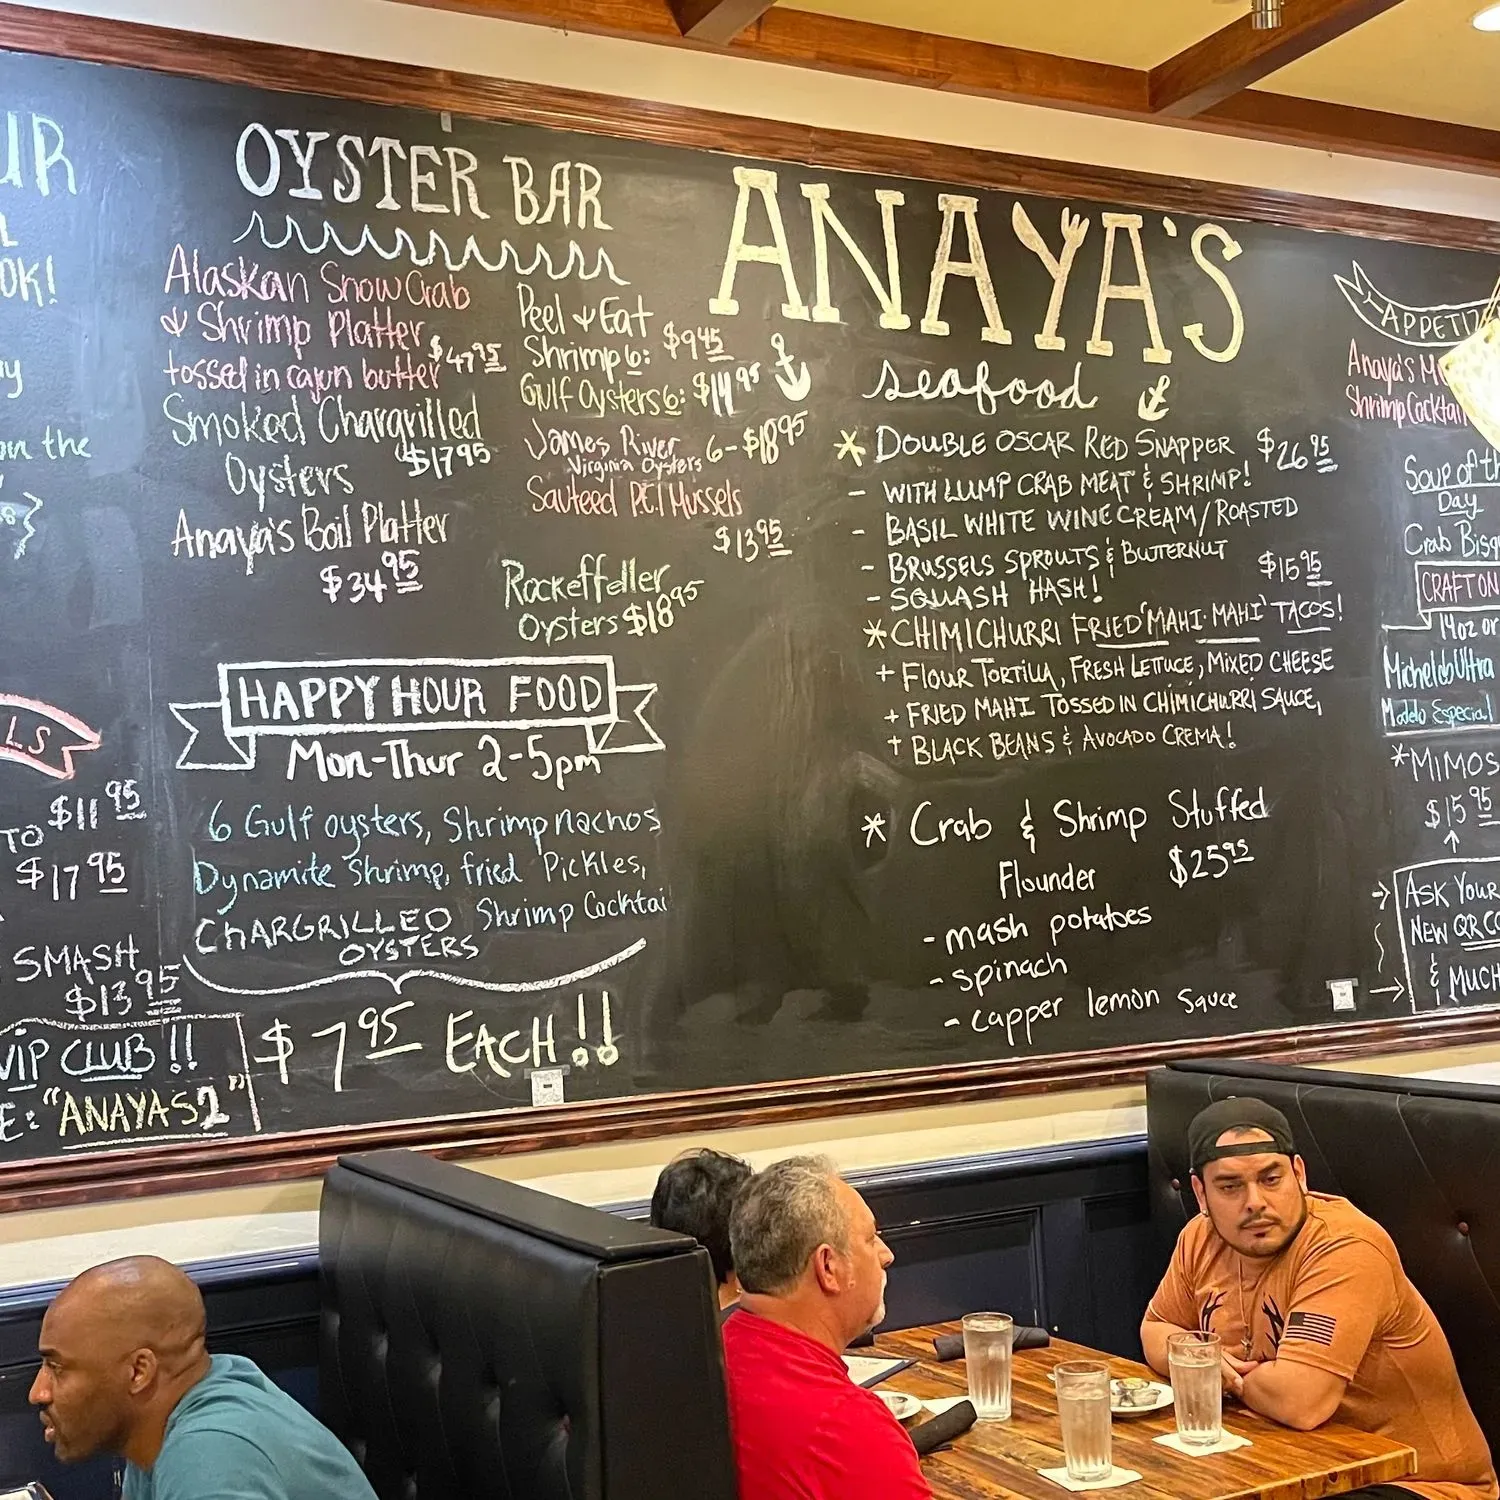 UR
L
OK!
on the
LS
$11 95
TO
$17 95
SMASH
$13 95
VIP CLUB!!
E: "ANAYAS2"
OYSTER BAR
Alaskan Snow Crab
& Shrimp Platter
tossed in cajun butter $47 95
Smoked Chargrilled
Oysters $17 95
Anaya's Boil Platter
$34 95
Peel & Eat
Shrimp 6: $9 45
Gulf Oysters 6: $14 95
James River 6-$18 95
Virginia Oysters
Sauteed P.E.I Mussels
$13 95
Rockeffeller
Oysters $18 95
HAPPY HOUR FOOD
Mon-Thur 2-5pm
6 Gulf oysters, Shrimp nachos
Dynamite Shrimp, fried Pickles,
CHARGRILLED Shrimp Cocktai
OYSTERS
$7 95 EACH!!
ANAYA'S
seafood
* DOUBLE OSCAR RED SNAPPER $26 95
- WITH LUMP CRAB MEAT & SHRIMP!
- BASIL WHITE WINE CREAM/ROASTED
- BRUSSELS SPROUTS & BUTTERNUT
- SQUASH HASH! $15 95
* CHIMICHURRI FRIED 'MAHI-MAHI' TACOS!
+ FLOUR TORTILLA, FRESH LETTUCE, MIXED CHEESE
+ FRIED MAHI TOSSED IN CHIMICHURRI SAUCE,
+ BLACK BEANS & AVOCADO CREMA!
* Crab & Shrimp Stuffed
Flounder $25 95
- mash potatoes
- spinach
- capper lemon sauce
APPETIZ
Anaya's M
Shrimp Cocktail
Soup of th
Day
Crab Bisq
CRAFT ON
14oz or
Michelob Ultra
Modelo Especial
*MIMOS
$15 95
ASK YOUR
NEW QR CO
& MUCH